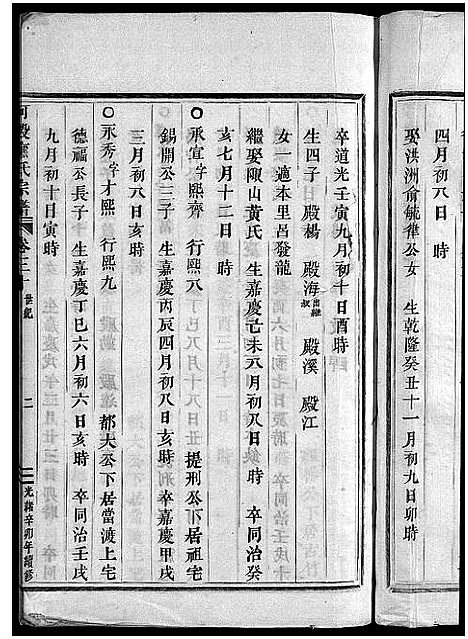 四月初八日　時
娶洪洲俞毓律公女　生乾隆癸丑十一月初九日卯時
卒道光壬寅九月初十日酉時
生四子　殿楊　殿海出繼叔　殿溪　殿江
女一適本里呂發龍
繼娶陬山黃氏　生嘉慶己未八月初八日缺時　卒同治癸
亥七月十二日　時
○永宣字熙齊　行熙八　提刑公下居祖宅
錫開公三子　生嘉慶丙辰四月初八日亥時　卒嘉慶甲戌
三月初八日亥時
○永秀字才熙　行熙九　都大公下居當渡上宅
德福公長子　生嘉慶丁巳六月初六日亥時　卒同治壬戌
九月初十日寅時
氏宗譜　卷之二十　世紀　二　光緒辛卯年續修